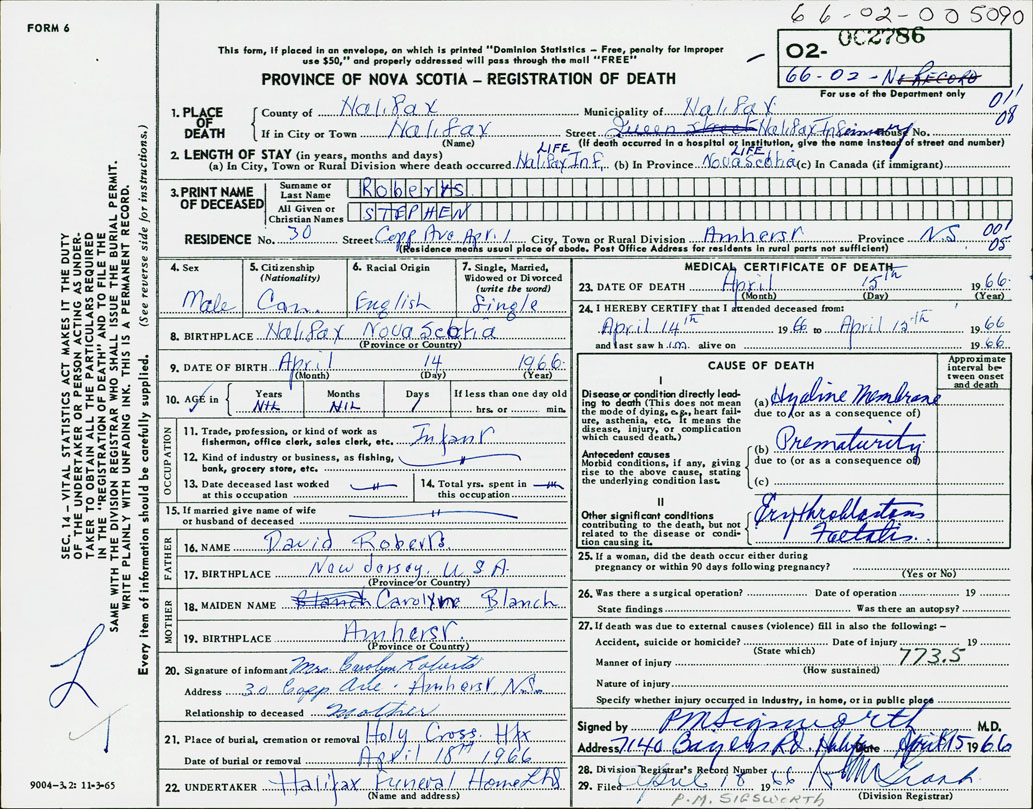 66-02-005090
FORM 6
This form, if placed in an envelope, on which is printed "Dominion Statistics – Free, penalty for improper
use $50," and properly addressed will pass through the mail "FREE"
PROVINCE OF NOVA SCOTIA – REGISTRATION OF DEATH
02- 002786
66-02-No RECORD
For use of the Department only
011
08
1. PLACE OF DEATH
County of Halifax Municipality of Halifax
If in City or Town Halifax Street Queen Street Halifax Infirmary House No.
(Name) (If death occurred in a hospital or institution, give the name instead of street and number)
2. LENGTH OF STAY (in years, months and days) LIFE LIFE
(a) In City, Town or Rural Division where death occurred Halifax Inf. (b) In Province Nova Scotia (c) In Canada (if immigrant)
3. PRINT NAME OF DECEASED
Surname or Last Name Roberts
All Given or Christian Names STEPHEN
RESIDENCE No. 30 Street Copp Ave Apt. 1 City, Town or Rural Division Amherst Province NS
(Residence means usual place of abode. Post Office Address for residents in rural parts not sufficient)
001
05
4. Sex
Male
5. Citizenship (Nationality)
Can.
6. Racial Origin
English
7. Single, Married, Widowed or Divorced (write the word)
Single
8. BIRTHPLACE Halifax Nova Scotia
(Province or Country)
9. DATE OF BIRTH April 14 1966
(Month) (Day) (Year)
10. AGE in Years Months Days If less than one day old
NIL NIL 1 hrs. or min.
OCCUPATION
11. Trade, profession, or kind of work as fisherman, office clerk, sales clerk, etc. Infant
12. Kind of industry or business, as fishing, bank, grocery store, etc.
13. Date deceased last worked at this occupation "
14. Total yrs. spent in this occupation "
15. If married give name of wife or husband of deceased "
FATHER
16. NAME David Roberts
17. BIRTHPLACE New Jersey. U.S.A.
(Province or Country)
MOTHER
18. MAIDEN NAME Blanch Carolyne Blanch
19. BIRTHPLACE Amherst.
(Province or Country)
20. Signature of informant Mrs. Carolyn Roberts
Address 30 Copp Ave. Amherst N.S.
Relationship to deceased Mother
21. Place of burial, cremation or removal Holy Cross. Hfx
Date of burial or removal April 18TH 1966
22. UNDERTAKER Halifax Funeral Home Ltd
(Name and address)
MEDICAL CERTIFICATE OF DEATH
23. DATE OF DEATH April 15th 1966.
(Month) (Day) (Year)
24. I HEREBY CERTIFY that I attended deceased from:
April 14th 1966 to April 15th 1966
and last saw him alive on 1966
CAUSE OF DEATH
Approximate interval between onset and death
I
Disease or condition directly leading to death (This does not mean the mode of dying, e.g., heart failure, asthenia, etc. It means the disease, injury, or complication which caused death.)
(a) Hyaline Membrane
due to (or as a consequence of)
Antecedent causes
Morbid conditions, if any, giving rise to the above cause, stating the underlying condition last.
(b) Prematurity
due to (or as a consequence of)
(c)
II
Other significant conditions contributing to the death, but not related to the disease or condition causing it.
Erythroblastosis
Foetalis.
25. If a woman, did the death occur either during pregnancy or within 90 days following pregnancy?
(Yes or No)
26. Was there a surgical operation? Date of operation 19
State findings Was there an autopsy?
27. If death was due to external causes (violence) fill in also the following: –
Accident, suicide or homicide? Date of injury 19
(State which)
773.5
Manner of injury
(How sustained)
Nature of injury
Specify whether injury occurred in industry, in home, or in public place
Signed by P M Sigsworth M.D.
Address 7140 Bayers Rd. Halifax Date April 15 1966
28. Division Registrar's Record Number
29. Filed April 18 1966
(Division Registrar)
P.M. SIGSWORTH
SEC. 14 – VITAL STATISTICS ACT MAKES IT THE DUTY
OF THE UNDERTAKER OR PERSON ACTING AS UNDER-
TAKER TO OBTAIN ALL THE PARTICULARS REQUIRED
IN THE "REGISTRATION OF DEATH" AND TO FILE THE
SAME WITH THE DIVISION REGISTRAR WHO SHALL ISSUE THE BURIAL PERMIT.
WRITE PLAINLY WITH UNFADING INK. THIS IS A PERMANENT RECORD.
Every item of information should be carefully supplied. (See reverse side for instructions.)
9004–3.2: 11-3-65